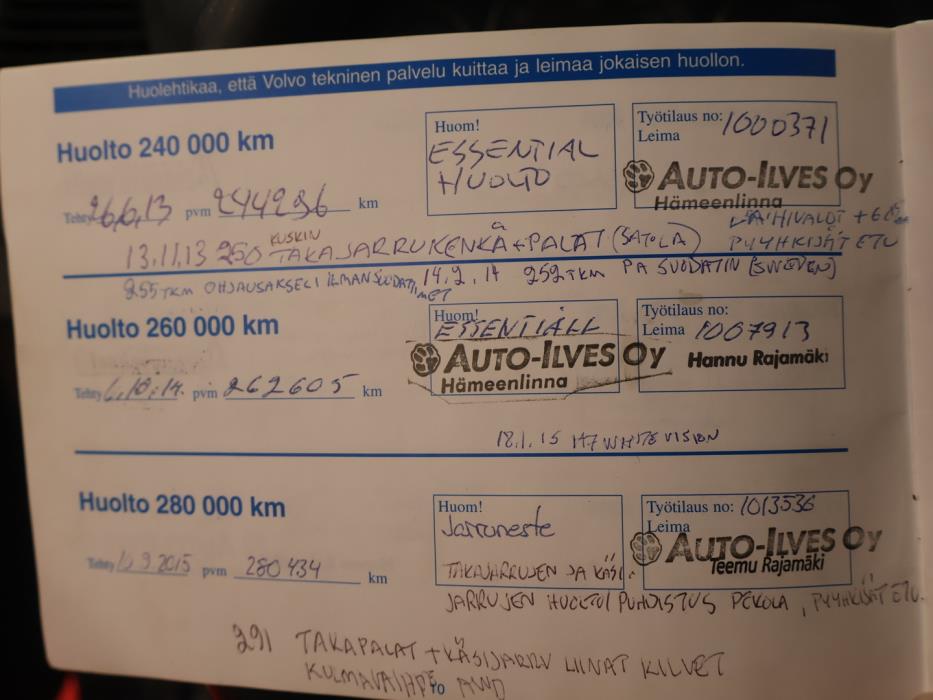 Huolehtikaa, että Volvo tekninen palvelu kuittaa ja leimaa jokaisen huollon.
Huolto 240 000 km
Huom!
ESSENTIAL
HUOLTO
Työtilaus no: 1000371
Leima
AUTO-ILVES Oy
Hämeenlinna
Tehty 26.6.13 pvm 244296 km
PYYHKIJÄT ETU
13.11.13 250 KUSKIN TAKAJARRUKENKÄ + PALAT (SATOLA)
255TKM OHJAUSAKSELI 14.2.14 252TKM PA SUODATIN (SWEDEN)
Huolto 260 000 km
Huom!
Työtilaus no:
Leima 1007913
AUTO-ILVES Oy
Hämeenlinna
Hannu Rajamäki
Tehty 6.10.14. pvm 262605 km
18.1.15 H7 WHITE VISION
Huolto 280 000 km
Huom!
Jarruneste
Työtilaus no: 1013536
Leima
AUTO-ILVES Oy
Teemu Rajamäki
Tehty 9.2015 pvm 280434 km
TAKAJARRUJEN JA KÄSI-
JARRUJEN HUOLTO/PUHDISTUS PEKOLA, PYYHKIJÄT ETU.
291 TAKAPALAT + KÄSIJARRU LIINAT KILVET
AWD